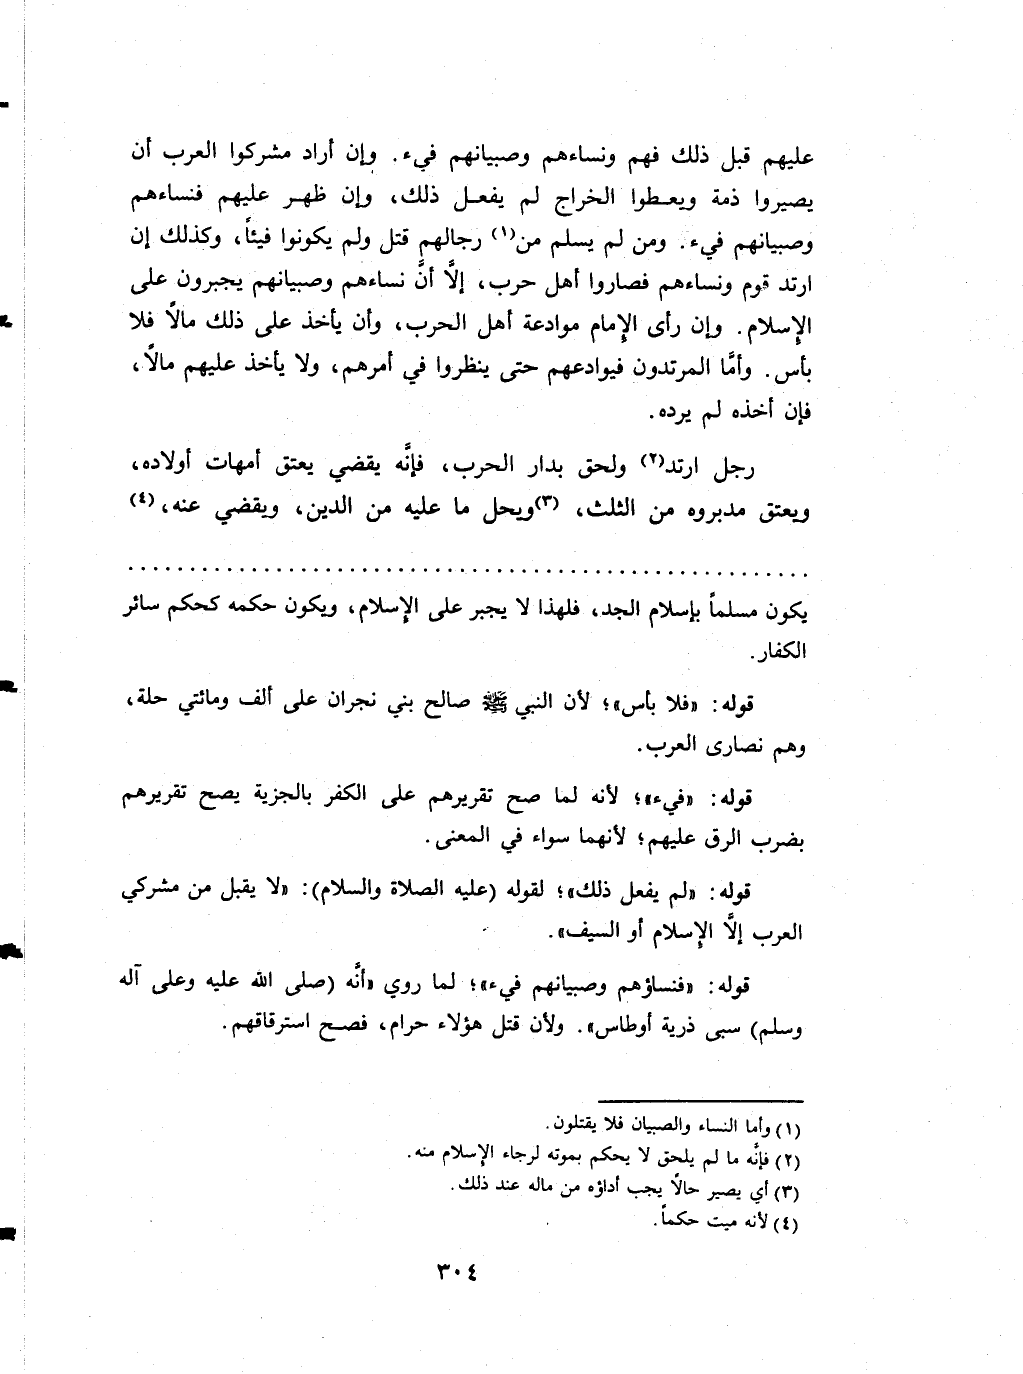 عليهم قبل ذلك فهم ونساءهم وصبيانهم فيء. وإن أراد مشركوا العرب أن
يصيروا ذمة ويعطوا الخراج لم يفعل ذلك، وإن ظهر عليهم فنساءهم
وصبيانهم فيء. ومن لم يسلم من(١) رجالهم قتل ولم يكونوا فيئاً، وكذلك إن
ارتد قوم ونساءهم فصاروا أهل حرب، إلَّا أنَّ نساءهم وصبيانهم يجبرون على
الإسلام. وإن رأى الإمام موادعة أهل الحرب، وأن يأخذ على ذلك مالًا فلا
بأس. وأمَّا المرتدون فيوادعهم حتى ينظروا في أمرهم، ولا يأخذ عليهم مالًا،
فإن أخذه لم يرده.
رجل ارتد(٢) ولحق بدار الحرب، فإنَّه يقضي يعتق أمهات أولاده،
ويعتق مدبروه من الثلث، (٣)ويحل ما عليه من الدين، ويقضي عنه،(٤)
يكون مسلماً بإسلام الجد، فلهذا لا يجبر على الإسلام، ويكون حكمه كحكم سائر
الكفار.
قوله: «فلا بأس»؛ لأن النبي ﷺ صالح بني نجران على ألف ومائتي حلة،
وهم نصارى العرب.
قوله: «فيء»؛ لأنه لما صح تقريرهم على الكفر بالجزية يصح تقريرهم
بضرب الرق عليهم؛ لأنهما سواء في المعنى.
قوله: «لم يفعل ذلك»؛ لقوله (عليه الصلاة والسلام): «لا يقبل من مشركي
العرب إلَّا الإسلام أو السيف».
قوله: «فنساؤهم وصبيانهم فيء»؛ لما روي «أنَّه (صلى الله عليه وعلى آله
وسلم) سبى ذرية أوطاس». ولأن قتل هؤلاء حرام، فصح استرقاقهم.
(١) وأما النساء والصبيان فلا يقتلون.
(٢) فإنَّه ما لم يلحق لا يحكم بموته لرجاء الإسلام منه.
(٣) أي يصير حالًا يجب أداؤه من ماله عند ذلك.
(٤) لأنه ميت حكماً.
٣٠٤